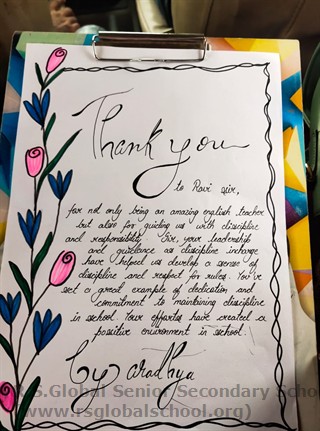 Thank you
to Ravi sir,
for not only being an amazing english teacher
but also for guiding us with discipline
and responsibility. Sir, your leadership
and guidence as discipline incharge
have helped us develop a sense of
discipline and respect for rules. You've
set a great example of dedication and
commitment to maintaining discipline
in school. Your efforts have created a
positive environment in school.
by aradhya
R.S.Global Senior Secondary Scho
www.rsglobalschool.org)